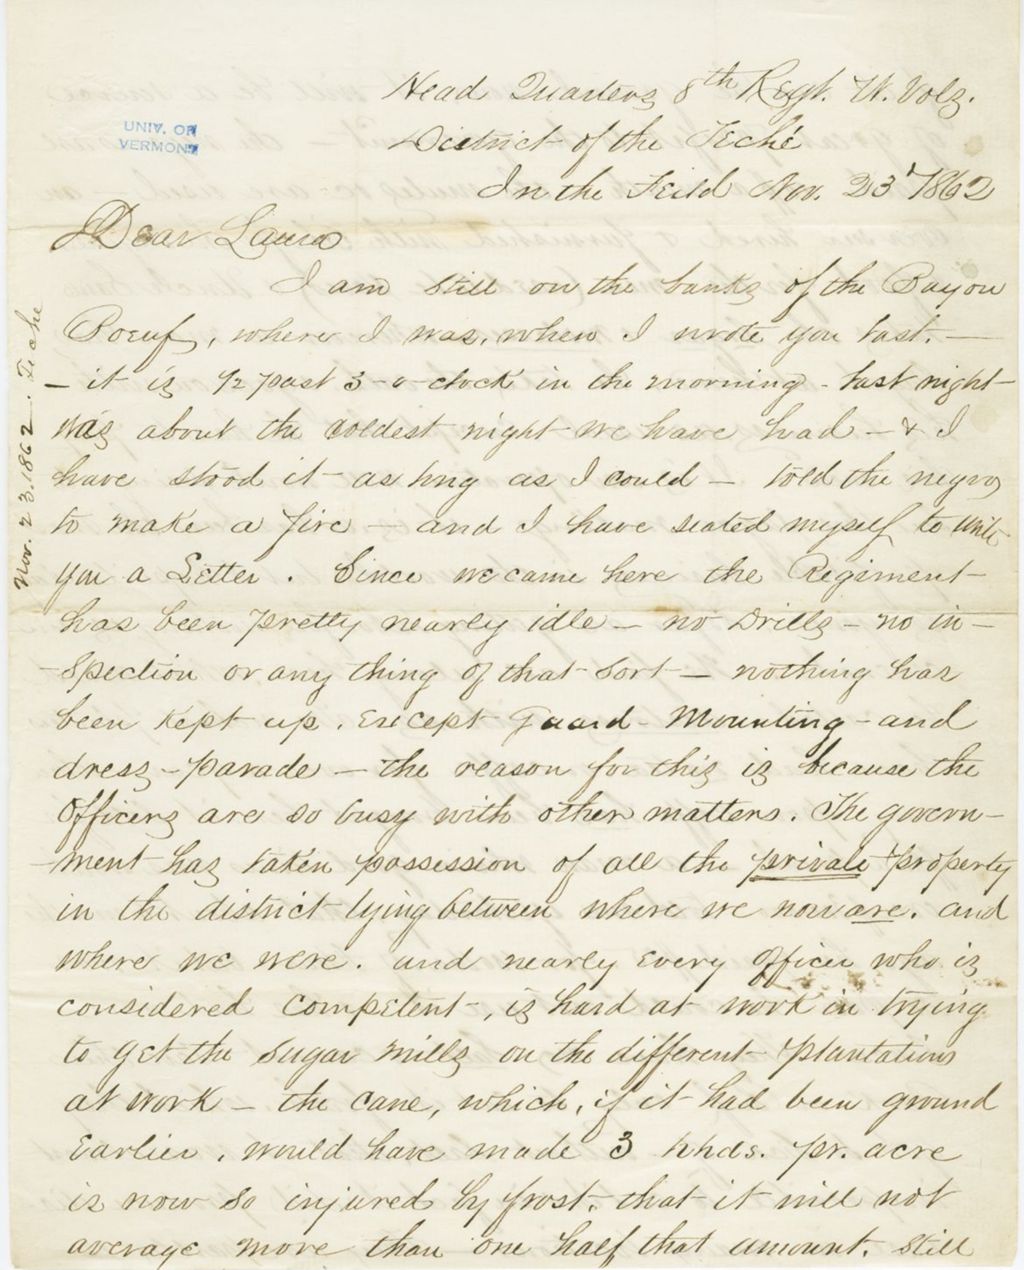 Head Quarters 8th Regt. Vt. Volz.
UNIV. OF
VERMONT
District of the Teché
In the Feild Nov. 23 1862
Dear Laura
I am still on the banks of the Bayou
Boeuf, where I was, when I wrote you last. —
— it is ½ past 3 - o - clock in the morning - last night
was about the coldest night we have had — & I
have stood it as long as I could — told the negro
to make a fire — and I have seated myself to write
you a Letter. Since we came here the Regiment
has been pretty nearly idle — no Drills — no in-
-spection or any thing of that sort — nothing has
been kept up, except Guard - Mounting - and
dress - parade — the reason for this is because the
Officers are so busy with other matters. The govern-
-ment has taken possession of all the private property
in the district lying between where we now are. and
where we were. and nearly every officer who is
considered competent, is hard at work in trying
to get the sugar mills on the different plantations
at work — the cane, which, if it had been ground
Earlier, would have made 3 hhds. pr. acre
is now so injured by frost, that it will not
average more than one half that amount. Still
Nov. 23. 1862. Teche